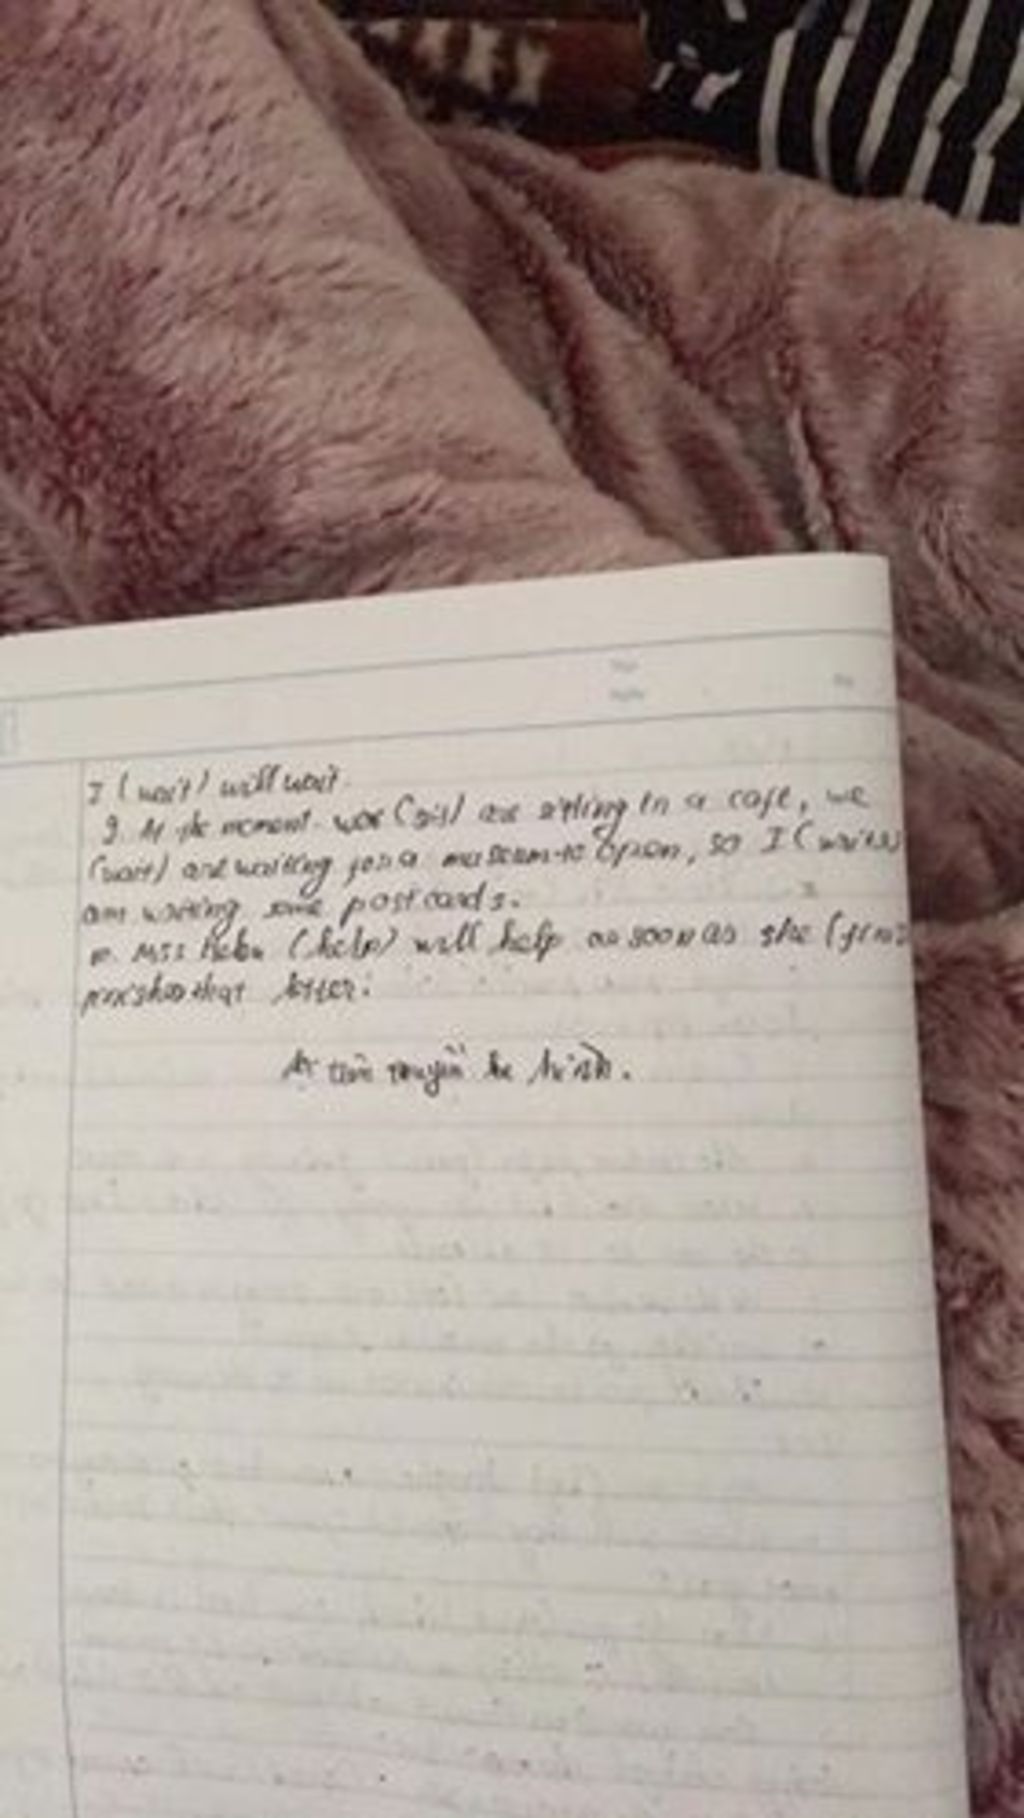 I (wait) will wait.
9. At the moment we (sit) are sitting in a cafe, we
(wait) are waiting for a museum to open, so I (write)
am writing some postcards.
Miss Helen (help) will help as soon as she (finis
finishes that letter.